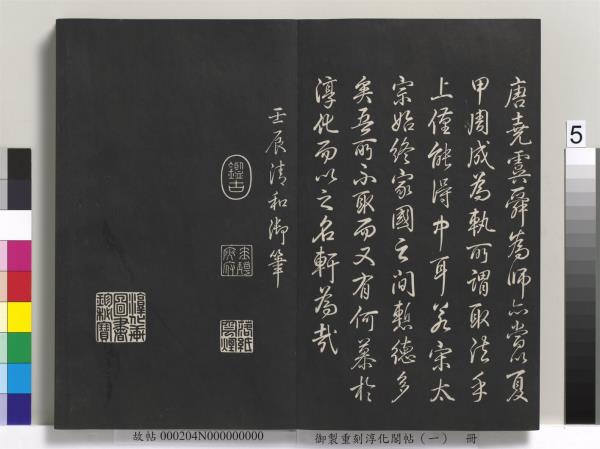 唐堯虞舜為師亦當以夏
甲周成為執所謂取法乎
上僅能得中耳若宋太
宗始終家國之间慙德多
矣吾所不取而又有何慕於
淳化而以之名軒為哉
壬辰清和御筆
鑑古
落紙
雲煙
淳化軒
圖書
珍秘寶
5
故帖 000204N000000000
御製重刻淳化閣帖（一） 冊